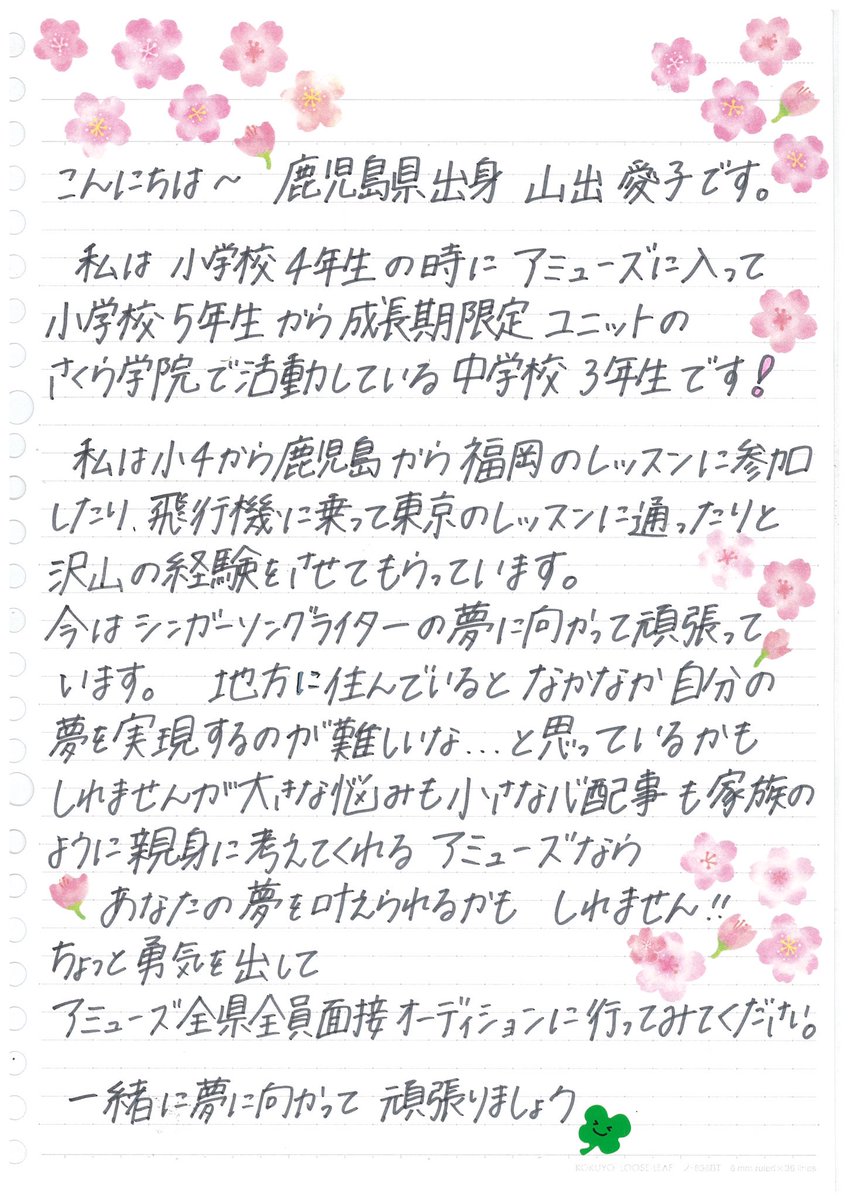 こんにちは～ 鹿児島県出身 山出 愛子です。
私は 小学校 4年生 の時に アミューズに入って
小学校 5年生 から 成長期限定 ユニットの
さくら学院で活動している 中学校 3年生です!
私は小4から鹿児島から福岡のレッスンに参加
したり、飛行機に乗って東京のレッスンに通ったりと
沢山の経験をさせてもらっています。
今はシンガーソングライターの夢に向かって頑張って
います。 地方に住んでいると なかなか 自分の
夢を実現するのが難しいな...と思っているかも
しれませんが大きな悩みも小さな心配事も家族の
ように親身に考えてくれる アミューズなら
あなたの夢を叶えられるかも しれません!!
ちょっと勇気を出して
アミューズ全県全員面接オーディションに行ってみてください。
一緒に夢に向かって 頑張りましょう
KOKUYO LOOSE-LEAF